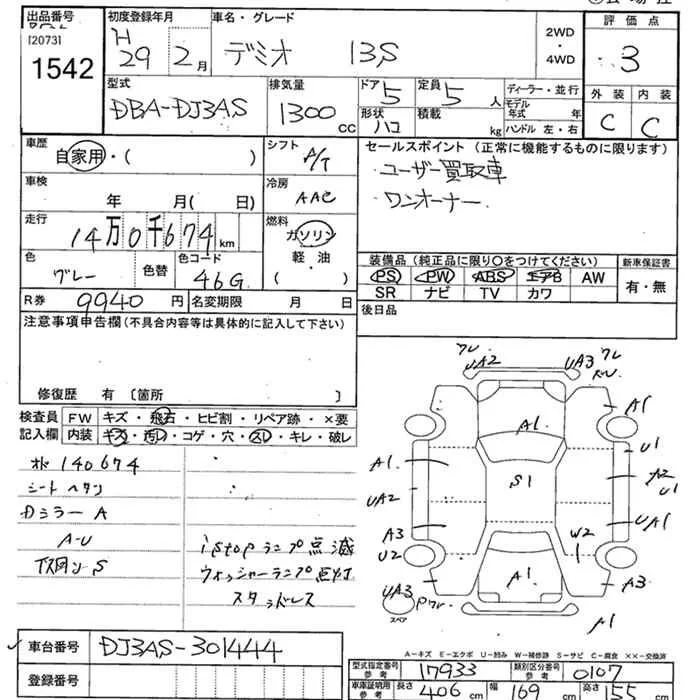 出品番号 初度登録年月 車名・グレード 評価点
[2073] 1542 H29 2月 デミオ 13S 2WD・4WD 3
型式 排気量 ドア 定員 ディーラー・並行 外装 内装
DBA-DJ3AS 1300cc 5 5人 モデル年式 年 C C
形状 ハコ 積載 kg ハンドル 左・右
車歴 シフト セールスポイント (正常に機能するものに限ります)
自家用・( ) A/T ・ユーザー買取車
車検 冷房 ・ワンオーナー
年 月( 日) AAC
走行 燃料
14万0千674km ガソリン
軽・油
( )
色 色替 色コード 装備品(純正品に限り〇をつけてください) 新車保証書
グレー 46G PS PW ABS エアB AW 有・無
SR ナビ TV カワ
R券 9940円 名変期限 月 日 後日品
注意事項申告欄(不具合内容等は具体的に記入して下さい)
修復歴 有 〔箇所 〕
検査員 FW キズ・飛石・ヒビ割・リペア跡・×要
記入欄 内装 キズ・汚レ・コゲ・穴・スレ・キレ・破レ
140674
シートヘタリ
ミラー A
A-U
S
istopランプ点滅
ウォッシャーランプ点灯
スタッドレス
ワレ UA2 UA3 ワレ
A1 A1
U1
A1 S1 A2 U1
UA2
A3 W2 UA1
U2
UA3 A1 A3
スペア A1
A-キズ E-エクボ U-凹み W-補修跡 S-サビ C-腐食 ××-交換済
車台番号 DJ3AS-301444
登録番号
型式指定番号 参考 17933 類別区分番号 参考 0107
車庫証明用 参考 長さ 406cm 幅 169cm 高さ 155cm